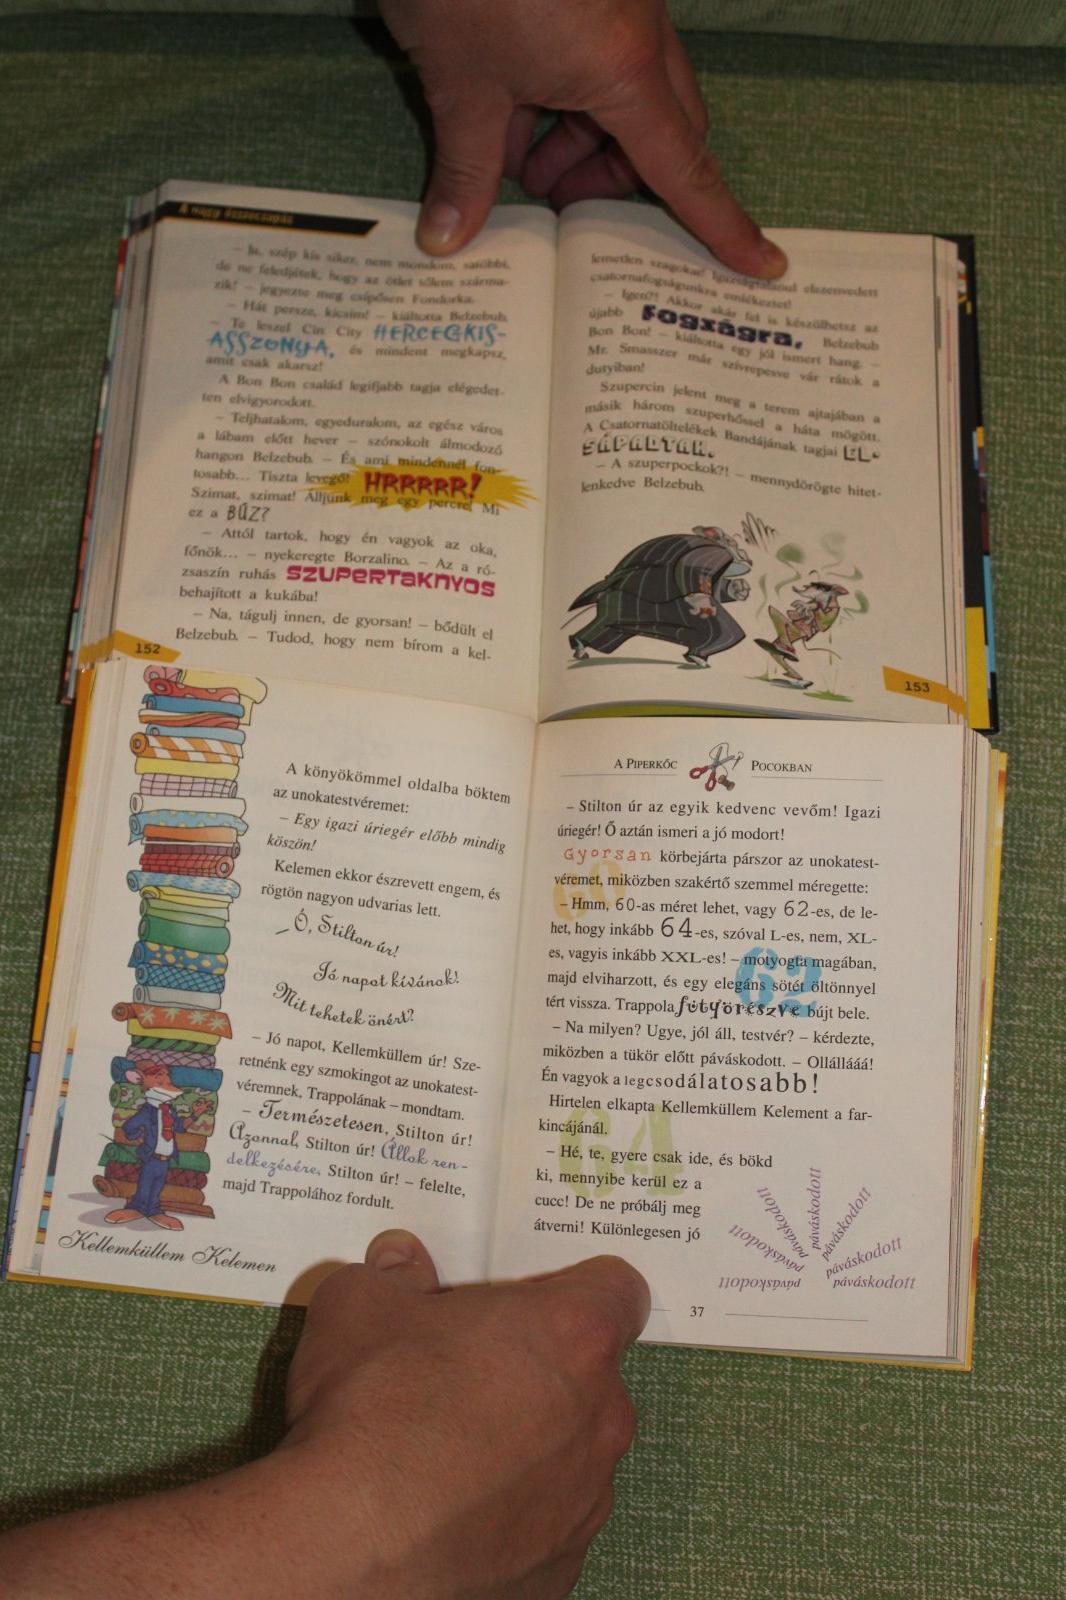 A nagy összecsapás
– Is, szép kis siker, nem mondom, satöbbi,
de ne feledjétek, hogy az ötlet tőlem szárma-
zik! – jegyezte meg csípősen Fondorka.
– Hát persze, kicsim! – kiáltotta Belzebub.
– Te leszel Cin City HERCEGKIS-
ASSZONYA, és mindent megkapsz,
amit csak akarsz!
A Bon Bon család legifjabb tagja elégedet-
ten elvigyorodott.
– Teljhatalom, egyeduralom, az egész város
a lábam előtt hever – szónokolt álmodozó
hangon Belzebub. – És ami mindennél fon-
tosabb... Tiszta levegő! HRRRRR!
Szimat, szimat! Álljunk meg egy percre! Mi
ez a BŰZ?
– Attól tartok, hogy én vagyok az oka,
főnök... – nyekeregte Borzalino. – Az a ró-
zsaszín ruhás SZUPERTAKNYOS
behajított a kukába!
– Na, tágulj innen, de gyorsan! – bődült el
Belzebub. – Tudod, hogy nem bírom a kel-
152
lemetlen szagokat! elszenvedett
csatornafogságunkra emlékeztet!
– Igen?! Akkor akár fel is készülhetsz az
újabb fogságra, Belzebub
Bon Bon! – kiáltotta egy jól ismert hang. –
Mr. Smasszer már szívrepesve vár rátok a
dutyiban!
Szupercin jelent meg a terem ajtajában a
másik három szuperhőssel a háta mögött.
A Csatornatöltelékek Bandájának tagjai EL-
SÁPADTAK.
– A szuperpockok?! – mennydörögte hitet-
lenkedve Belzebub.
153
A könyökömmel oldalba böktem
az unokatestvéremet:
– Egy igazi úriegér előbb mindig
köszön!
Kelemen ekkor észrevett engem, és
rögtön nagyon udvarias lett.
– Ó, Stilton úr!
Jó napot kívánok!
Mit tehetek önért?
– Jó napot, Kellemküllem úr! Sze-
retnénk egy szmokingot az unokatest-
véremnek, Trappolának – mondtam.
– Természetesen, Stilton úr!
Azonnal, Stilton úr! Állok ren-
delkezésére, Stilton úr! – felelte,
majd Trappolához fordult.
Kellemküllem Kelemen
A PIPERKŐC POCOKBAN
– Stilton úr az egyik kedvenc vevőm! Igazi
úriegér! Ő aztán ismeri a jó modort!
Gyorsan körbejárta párszor az unokatest-
véremet, miközben szakértő szemmel méregette:
60
– Hmm, 60-as méret lehet, vagy 62-es, de le-
het, hogy inkább 64-es, szóval L-es, nem, XL-
es, vagyis inkább XXL-es! – motyogta magában,
62
majd elviharzott, és egy elegáns sötét öltönnyel
tért vissza. Trappola fütyörészve bújt bele.
– Na milyen? Ugye, jól áll, testvér? – kérdezte,
miközben a tükör előtt páváskodott. – Ollállááá!
Én vagyok a legcsodálatosabb!
Hirtelen elkapta Kellemküllem Kelement a far-
kincájánál.
64
– Hé, te, gyere csak ide, és bökd
ki, mennyibe kerül ez a
cucc! De ne próbálj meg
átverni! Különlegesen jó
páváskodott
páváskodott
páváskodott
páváskodott
páváskodott
páváskodott
páváskodott
37